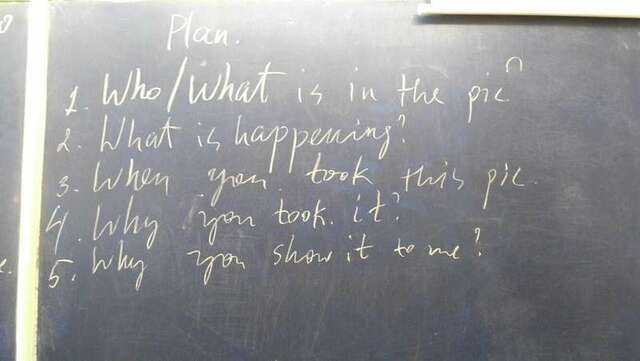 Plan.
1. Who/What is in the pic
2. What is happening?
3. When you took this pic.
4. Why you took it?
5. Why you show it to me?